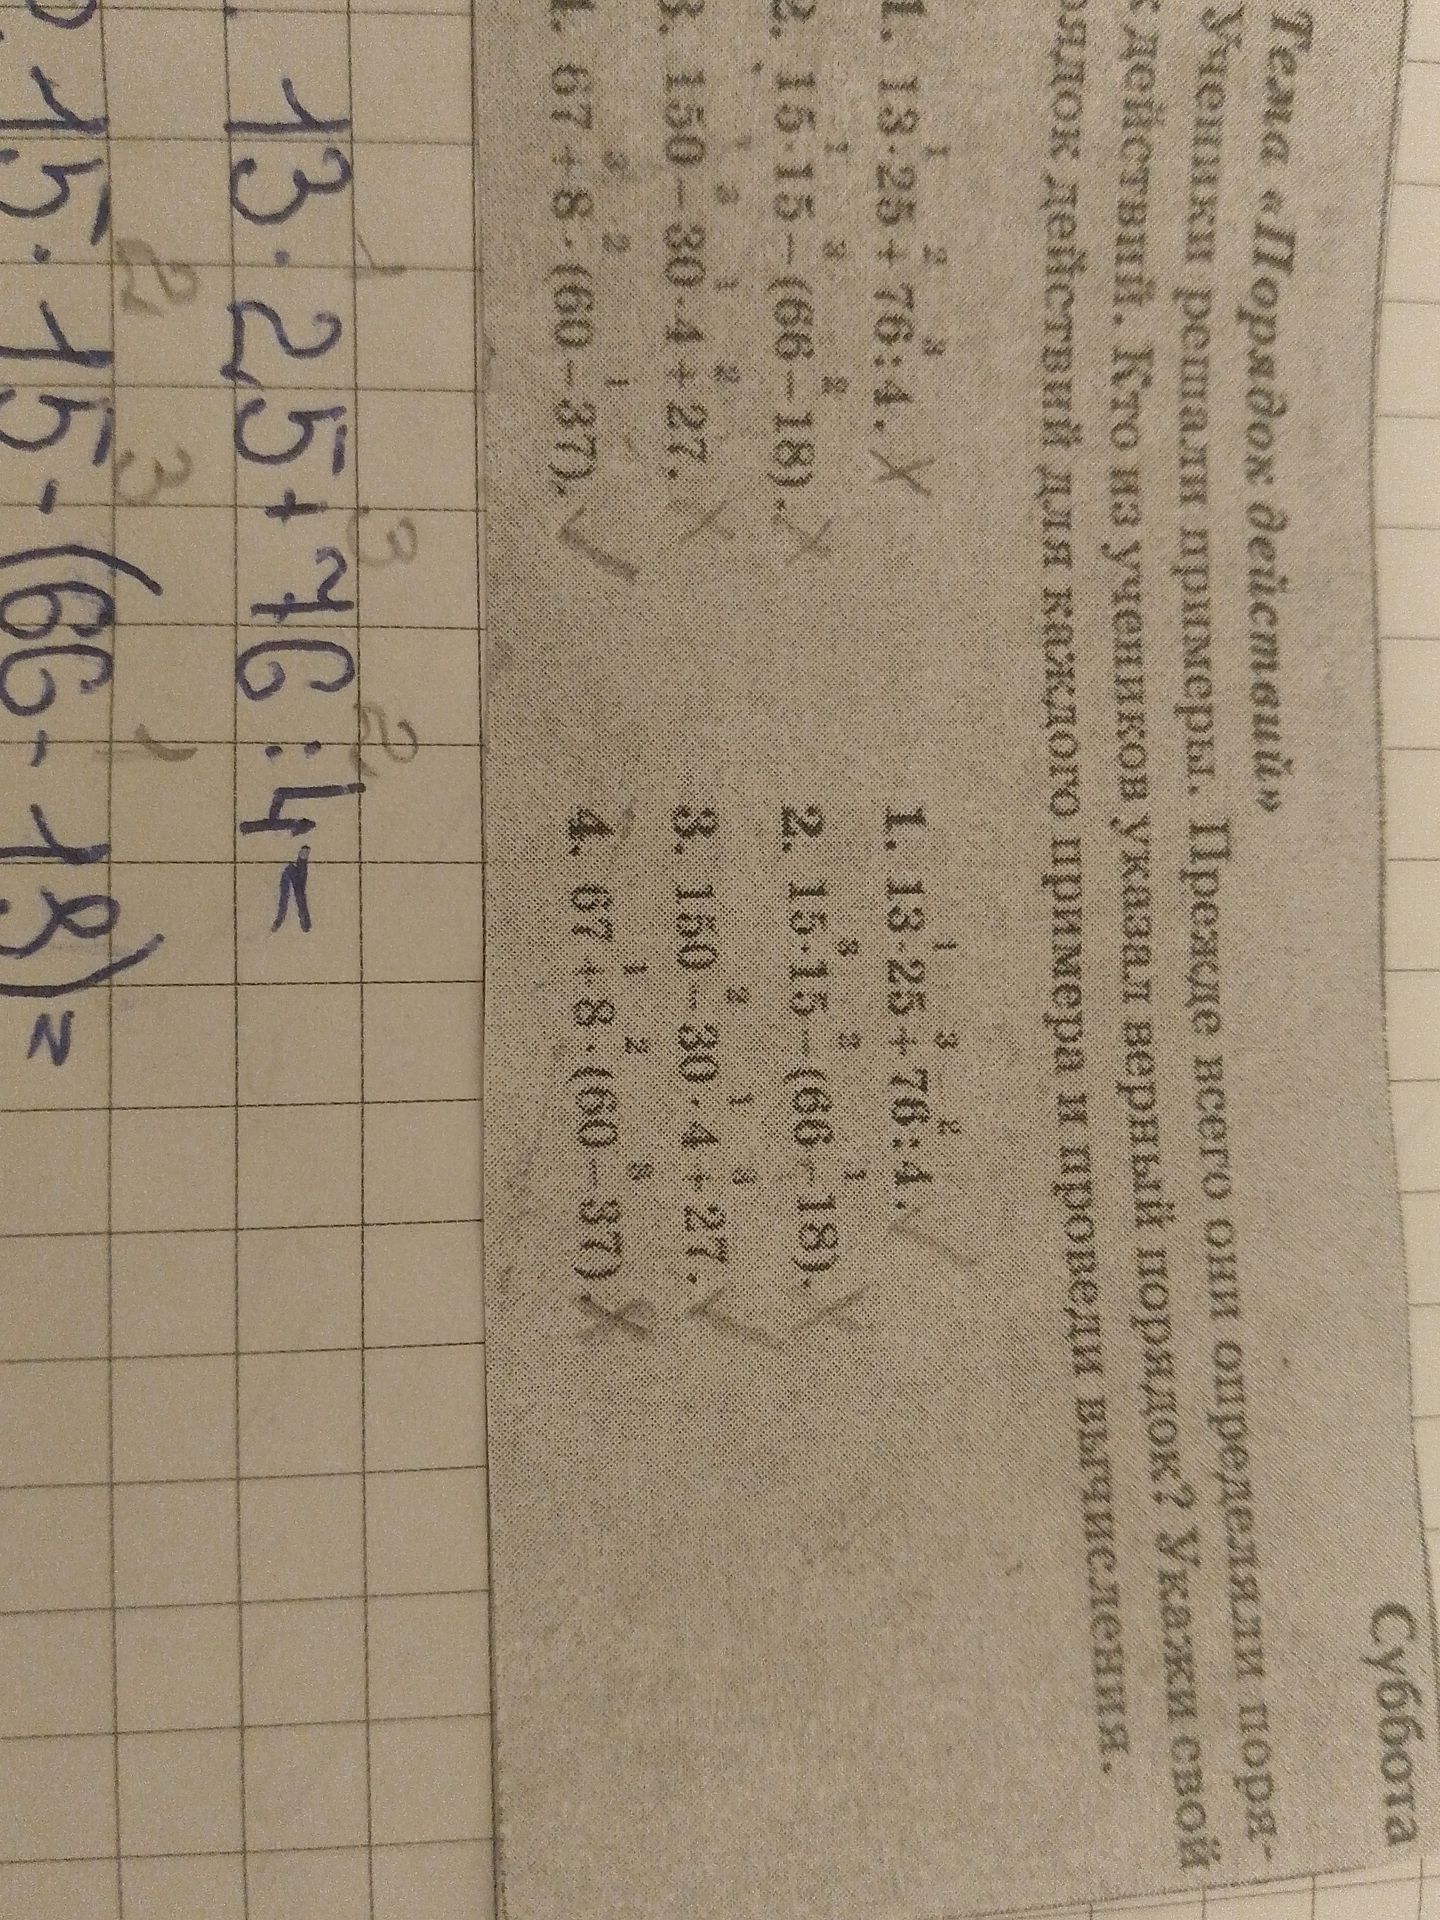 Суббота
Тема «Порядок действий»
Ученики решали примеры. Прежде всего они определяли поря-
к действий. Кто из учеников указал верный порядок? Укажи свой
рядок действий для каждого примера и проведи вычисления.
1 2 3
1. 13·25+76:4. X
1 3 2
2. 15·15-(66-18). X
3 1 2
3. 150-30·4+27. X
3 2 1
4. 67+8·(60-37). ✓
1 3 2
1. 13·25+76:4. ✓
3 2 1
2. 15·15-(66-18). X
2 1 3
3. 150-30·4+27. ✓
1 2 3
4. 67+8·(60-37). X
1 3 2
. 13·25+76:4=
2 3 1
2. 15·15-(66-18)=